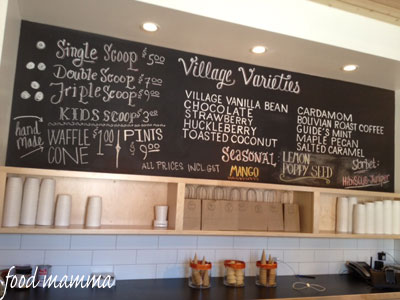 Single Scoop $5.00
Double Scoop $7.00
Triple Scoop $9.00
KIDS SCOOP $3.00
hand made
WAFFLE CONE $1.00
PINTS $9.00
ALL PRICES INCL GST
Village Varieties
VILLAGE VANILLA BEAN
CHOCOLATE
STRAWBERRY
HUCKLEBERRY
TOASTED COCONUT
CARDAMOM
BOLIVIAN ROAST COFFEE
GUIDE'S MINT
MAPLE PECAN
SALTED CARAMEL
SEASONAL
MANGO
LEMON
POPPY SEED
Sorbet:
HIBISCUS JUNIPER
food mamma